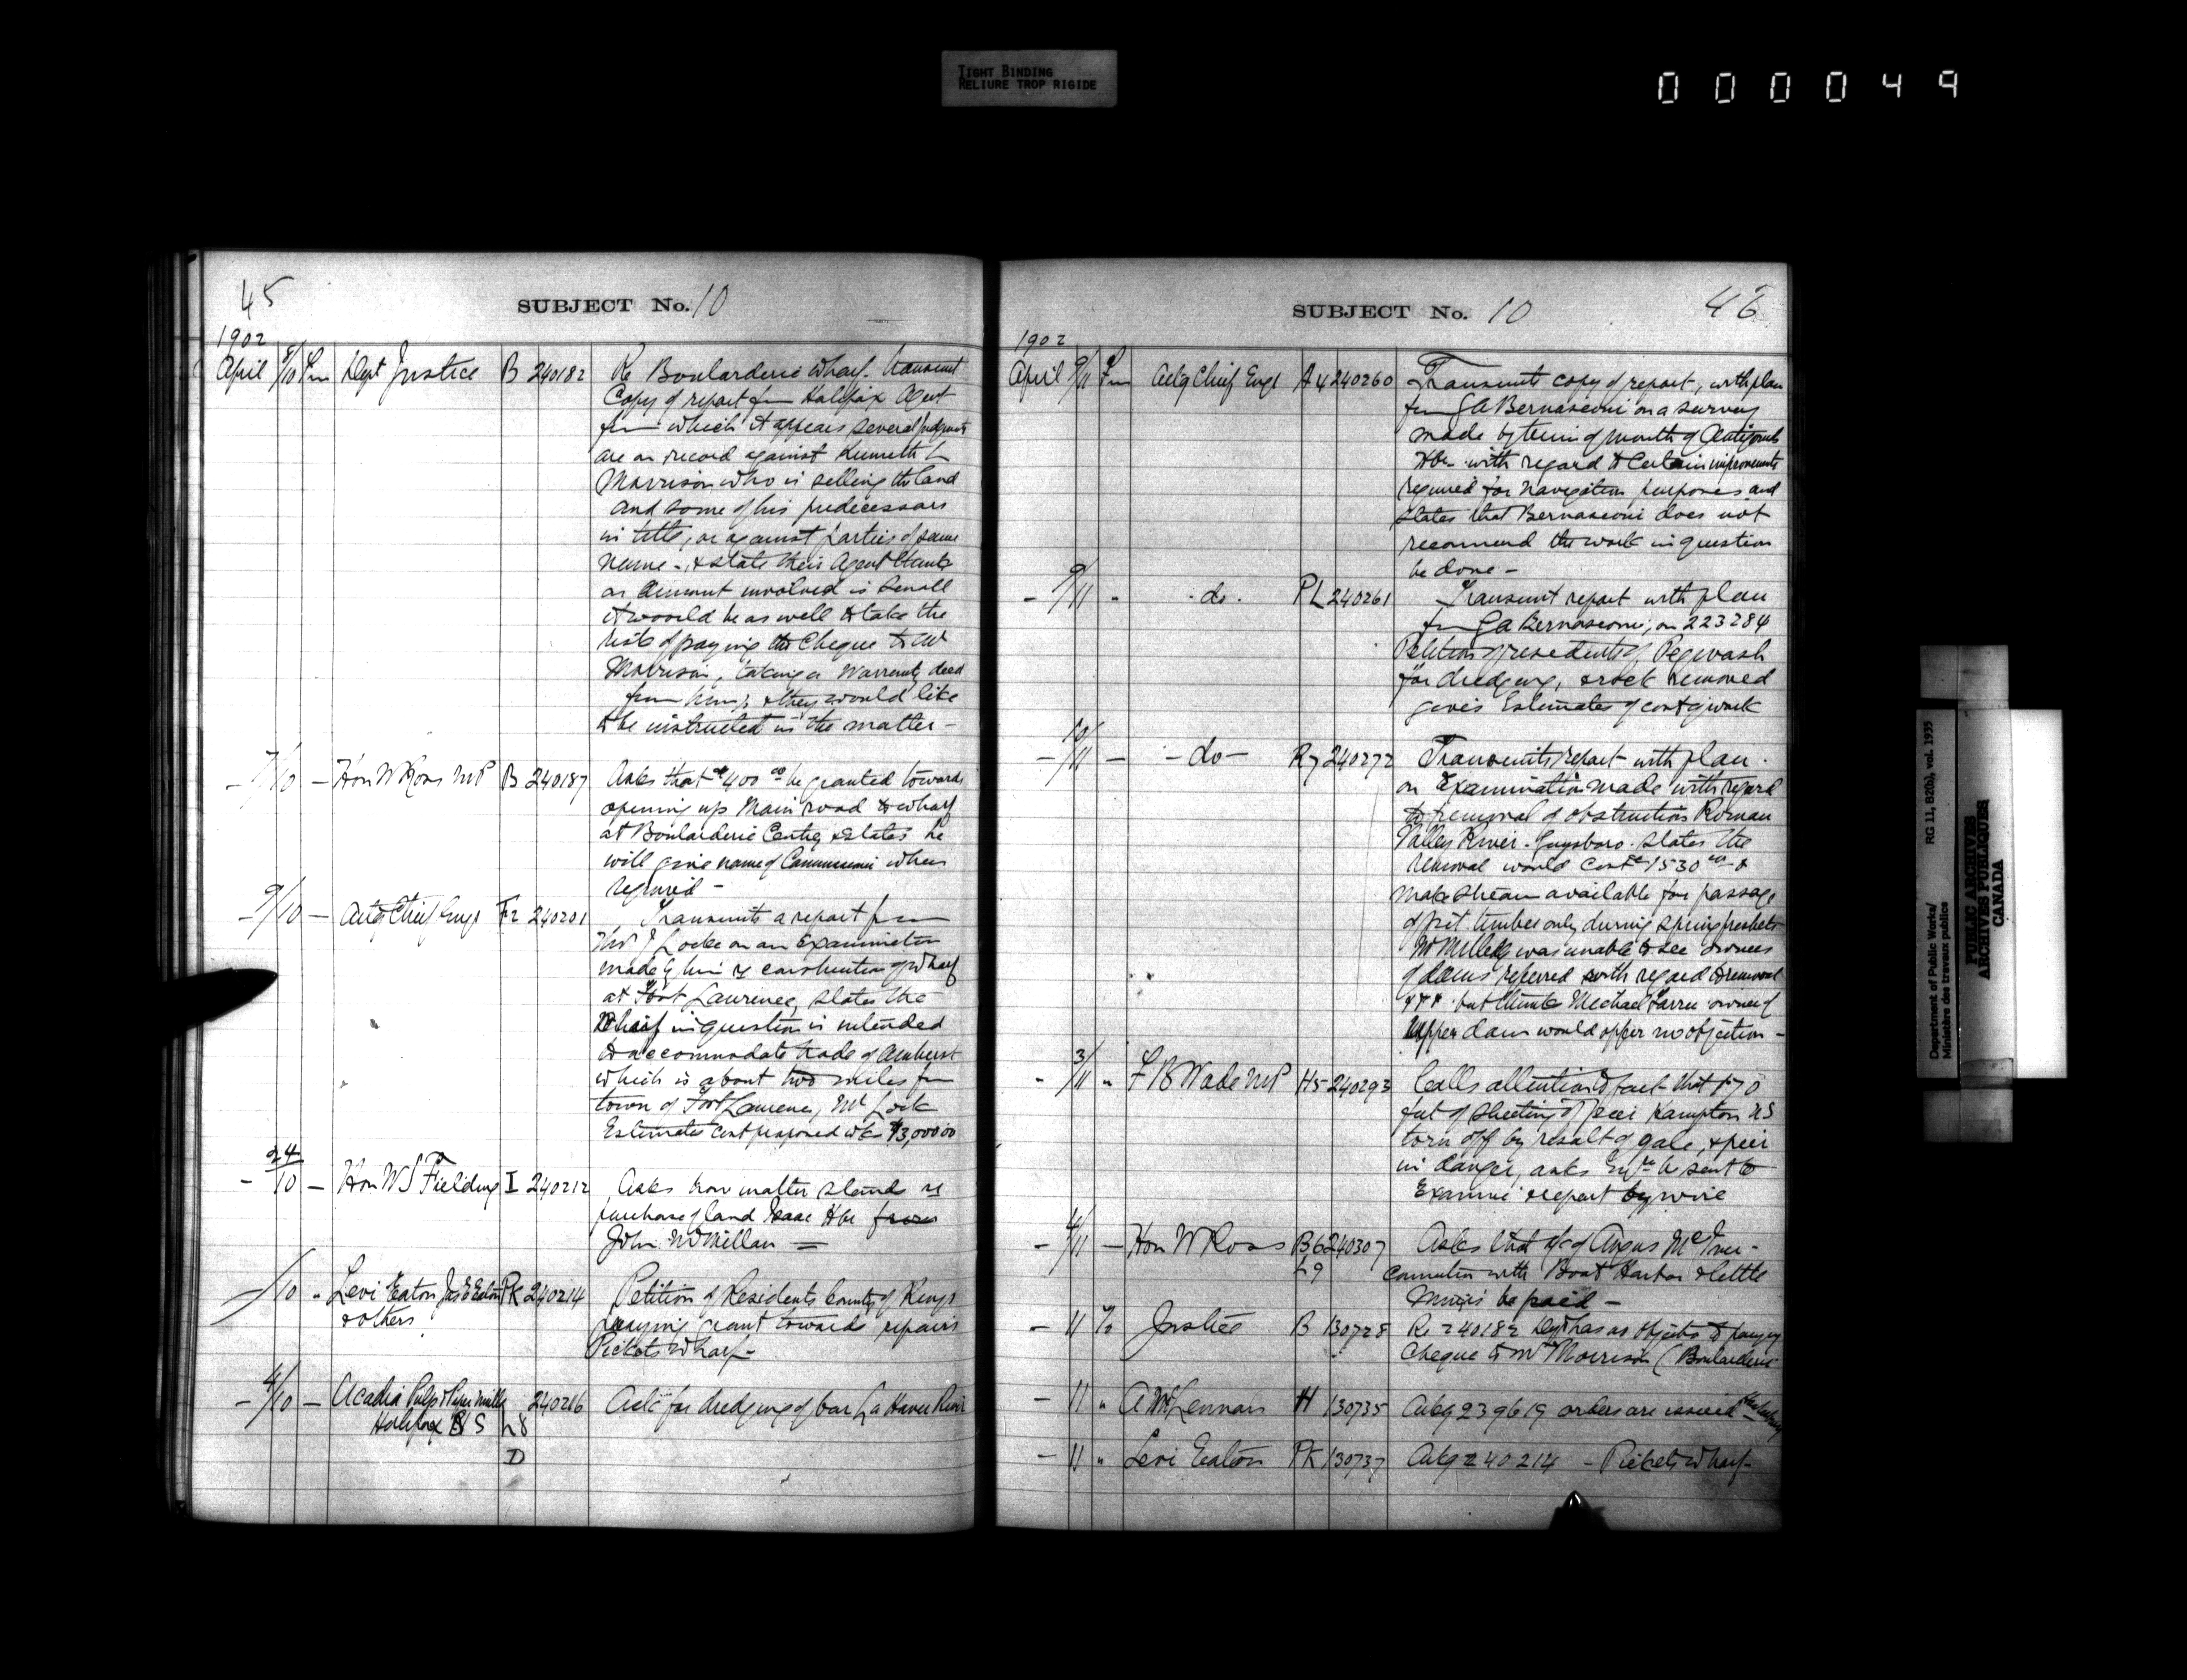 TIGHT BINDING
RELIURE TROP RIGIDE
000049
45
SUBJECT No. 10
1902
April 8/10 Fm Dept Justice B 240182 Re Boularderie Wharf. Transmit
Copy of report fm Halifax Agent
fm which it appears several judgments
are on record against Kenneth L
Morrison who is selling the land
and some of his predecessors
in title, or against parties of same
name -, & state their Agent thinks
as amount involved is small
it would be as well to take the
risk of paying the Cheque to Mr
Morrison, taking a Warranty deed
from him; & they would like
to be instructed in the matter -
- 7/10 - Hon W Ross MP B 240187 Asks that $400 00 be granted towards
opening up Main road to wharf
at Boularderie Centre, & states he
will give name of Commissioner when
required -
- 9/10 - Actg Chief Engr F2 240201 Transmits a report from
Thos J Locke on an Examination
made by him re construction of Wharf
at Fort Laurence, states the
Wharf in question is intended
to accommodate trade of Amherst
which is about two miles fm
town of Fort Laurence, Mr Lock
Estimates cost proposed wk $3,000 00
- 24/10 - Hon W S Fielding I 240212 Asks how matter stands re
purchase of land Isaac Hbr from
John McMillan =
-/10 " Levi Eaton Jas E Eaton PK 240214 Petition of Residents County of Kings
& others praying grant towards repairs
Pickets Wharf -
- 4/10 - Acadia Pulp & Paper Mills 240216 Ask for dredging of bar La Have River
Halifax N S L8
D
SUBJECT No. 10
46
1902
April 9/11 Fm Actg Chief Engr A4 240260 Transmits copy of report, with plan
fm G A Bernasconi on a survey
made by him of mouth of Antigonish
Hbr - with regard to Certain improvements
required for navigation purposes and
states that Bernasconi does not
recommend the work in question
be done -
- 9/11 " - do - PL 240261 Transmit report with plan
fm G A Bernasconi, on 223284
Petition of residents of Pugwash
for dredging, & rock removed
gives Estimates of cost of work
- 10/11 - - do - R7 240272 Transmits report with plan.
on Examination made with regard
to removal of obstruction Roman
Valley River - Guysboro. States the
removal would cost $1530 00 &
make stream available for passage
of pit timber only during spring freshets
of dams referred with regard to removal
but thinks Michael Farre owner of
Upper dam would offer no objection -
- 3/11 " F B Wade MP H5 240293 Calls attention to fact that 170
feet of sheeting of pier Hampton NS
torn off by result of gale, & pier
in danger, asks Engr be sent to
Examine & report by wire
- 4/11 - Hon W Ross B6 240307 Asks that a/c of Angus McIver -
L9 connection with Boat Harbor & Little
be paid -
- 11 To Justice B 130728 Re 240182 Dept has no objects to paying
Cheque to Mr Morrison (Boularderie
- 11 " A McLennan H 130735 Ackg 239619 orders are issued
- 11 " Levi Eaton PK 130737 Ackg 240214 - Pickets Wharf -
Department of Public Works/ RG 11, B2(b), vol. 1935
Ministère des travaux publics
PUBLIC ARCHIVES
ARCHIVES PUBLIQUES
CANADA